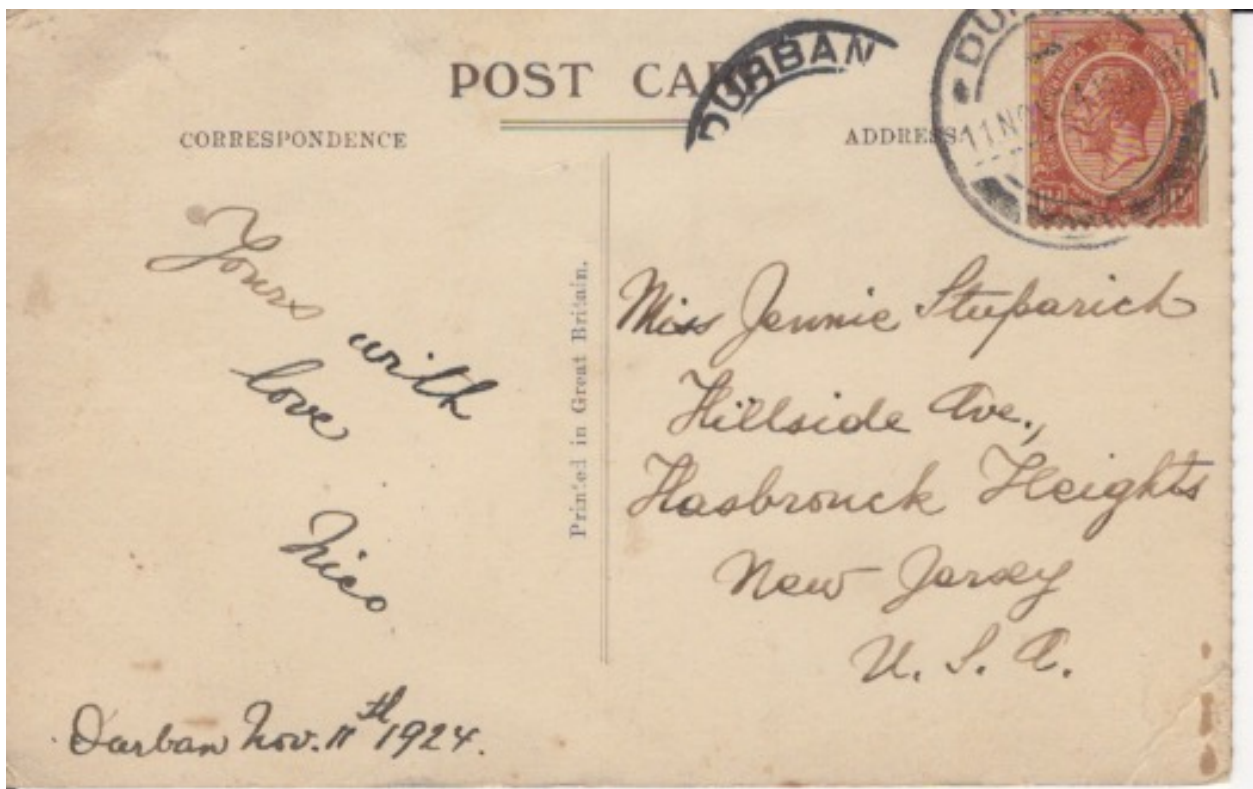 POST CA
DURBAN
DU
11 NO
CORRESPONDENCE
ADDRESS
Yours with
love
Nico
Durban Nov. 11th 1924.
Printed in Great Britain.
Miss Jennie Stuparich
Hillside Ave.,
Hasbrouck Heights
New Jersey
U. S. A.